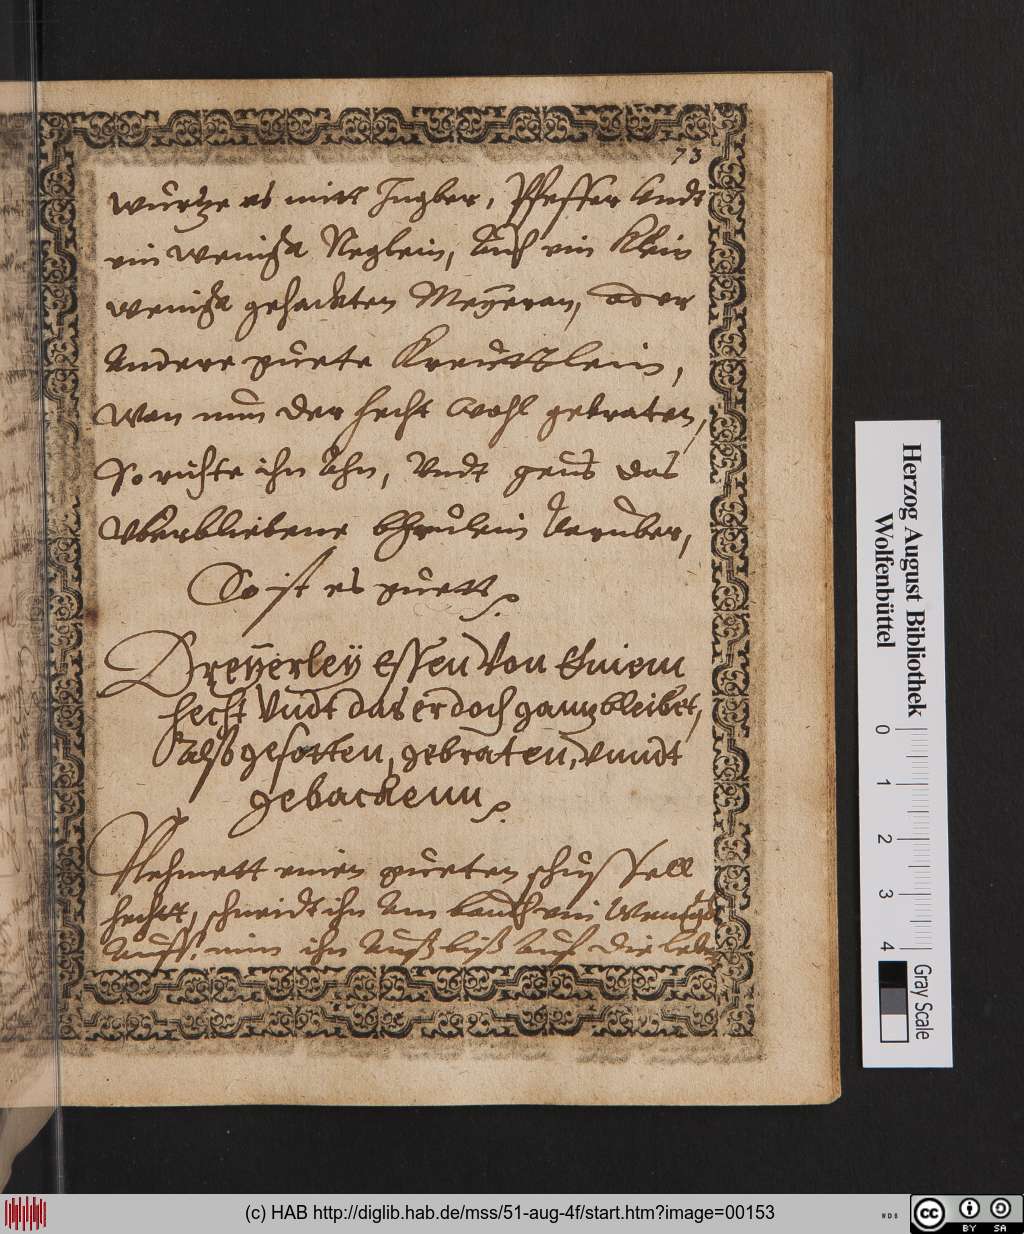 73
würtze es mitt Ingber, Pfeffer vndt
ein wenigk Neglein, auch ein klein
wenigk gehackten Meÿeran, oder
andere guete Kreuttlein,
wan nun der hecht wohl gebraten,
So richte ihn ahn, vndt geus das
vberbliebene brühlein darüber,
So ist es guett.
Dreyerley essen von Einem
hecht vndt das er doch gantz bleibet,
alß gesotten, gebraten, vnndt
gebackenn.
Nehmett einen gueten schussell
hechtt, schneidt ihn am bauch ein wenigk
auff, nim ihn auß biß auf die
Herzog August Bibliothek
Wolfenbüttel
0
1
2
3
4
Gray Scale
(c) HAB http://diglib.hab.de/mss/51-aug-4f/start.htm?image=00153
WDB
cc
BY SA